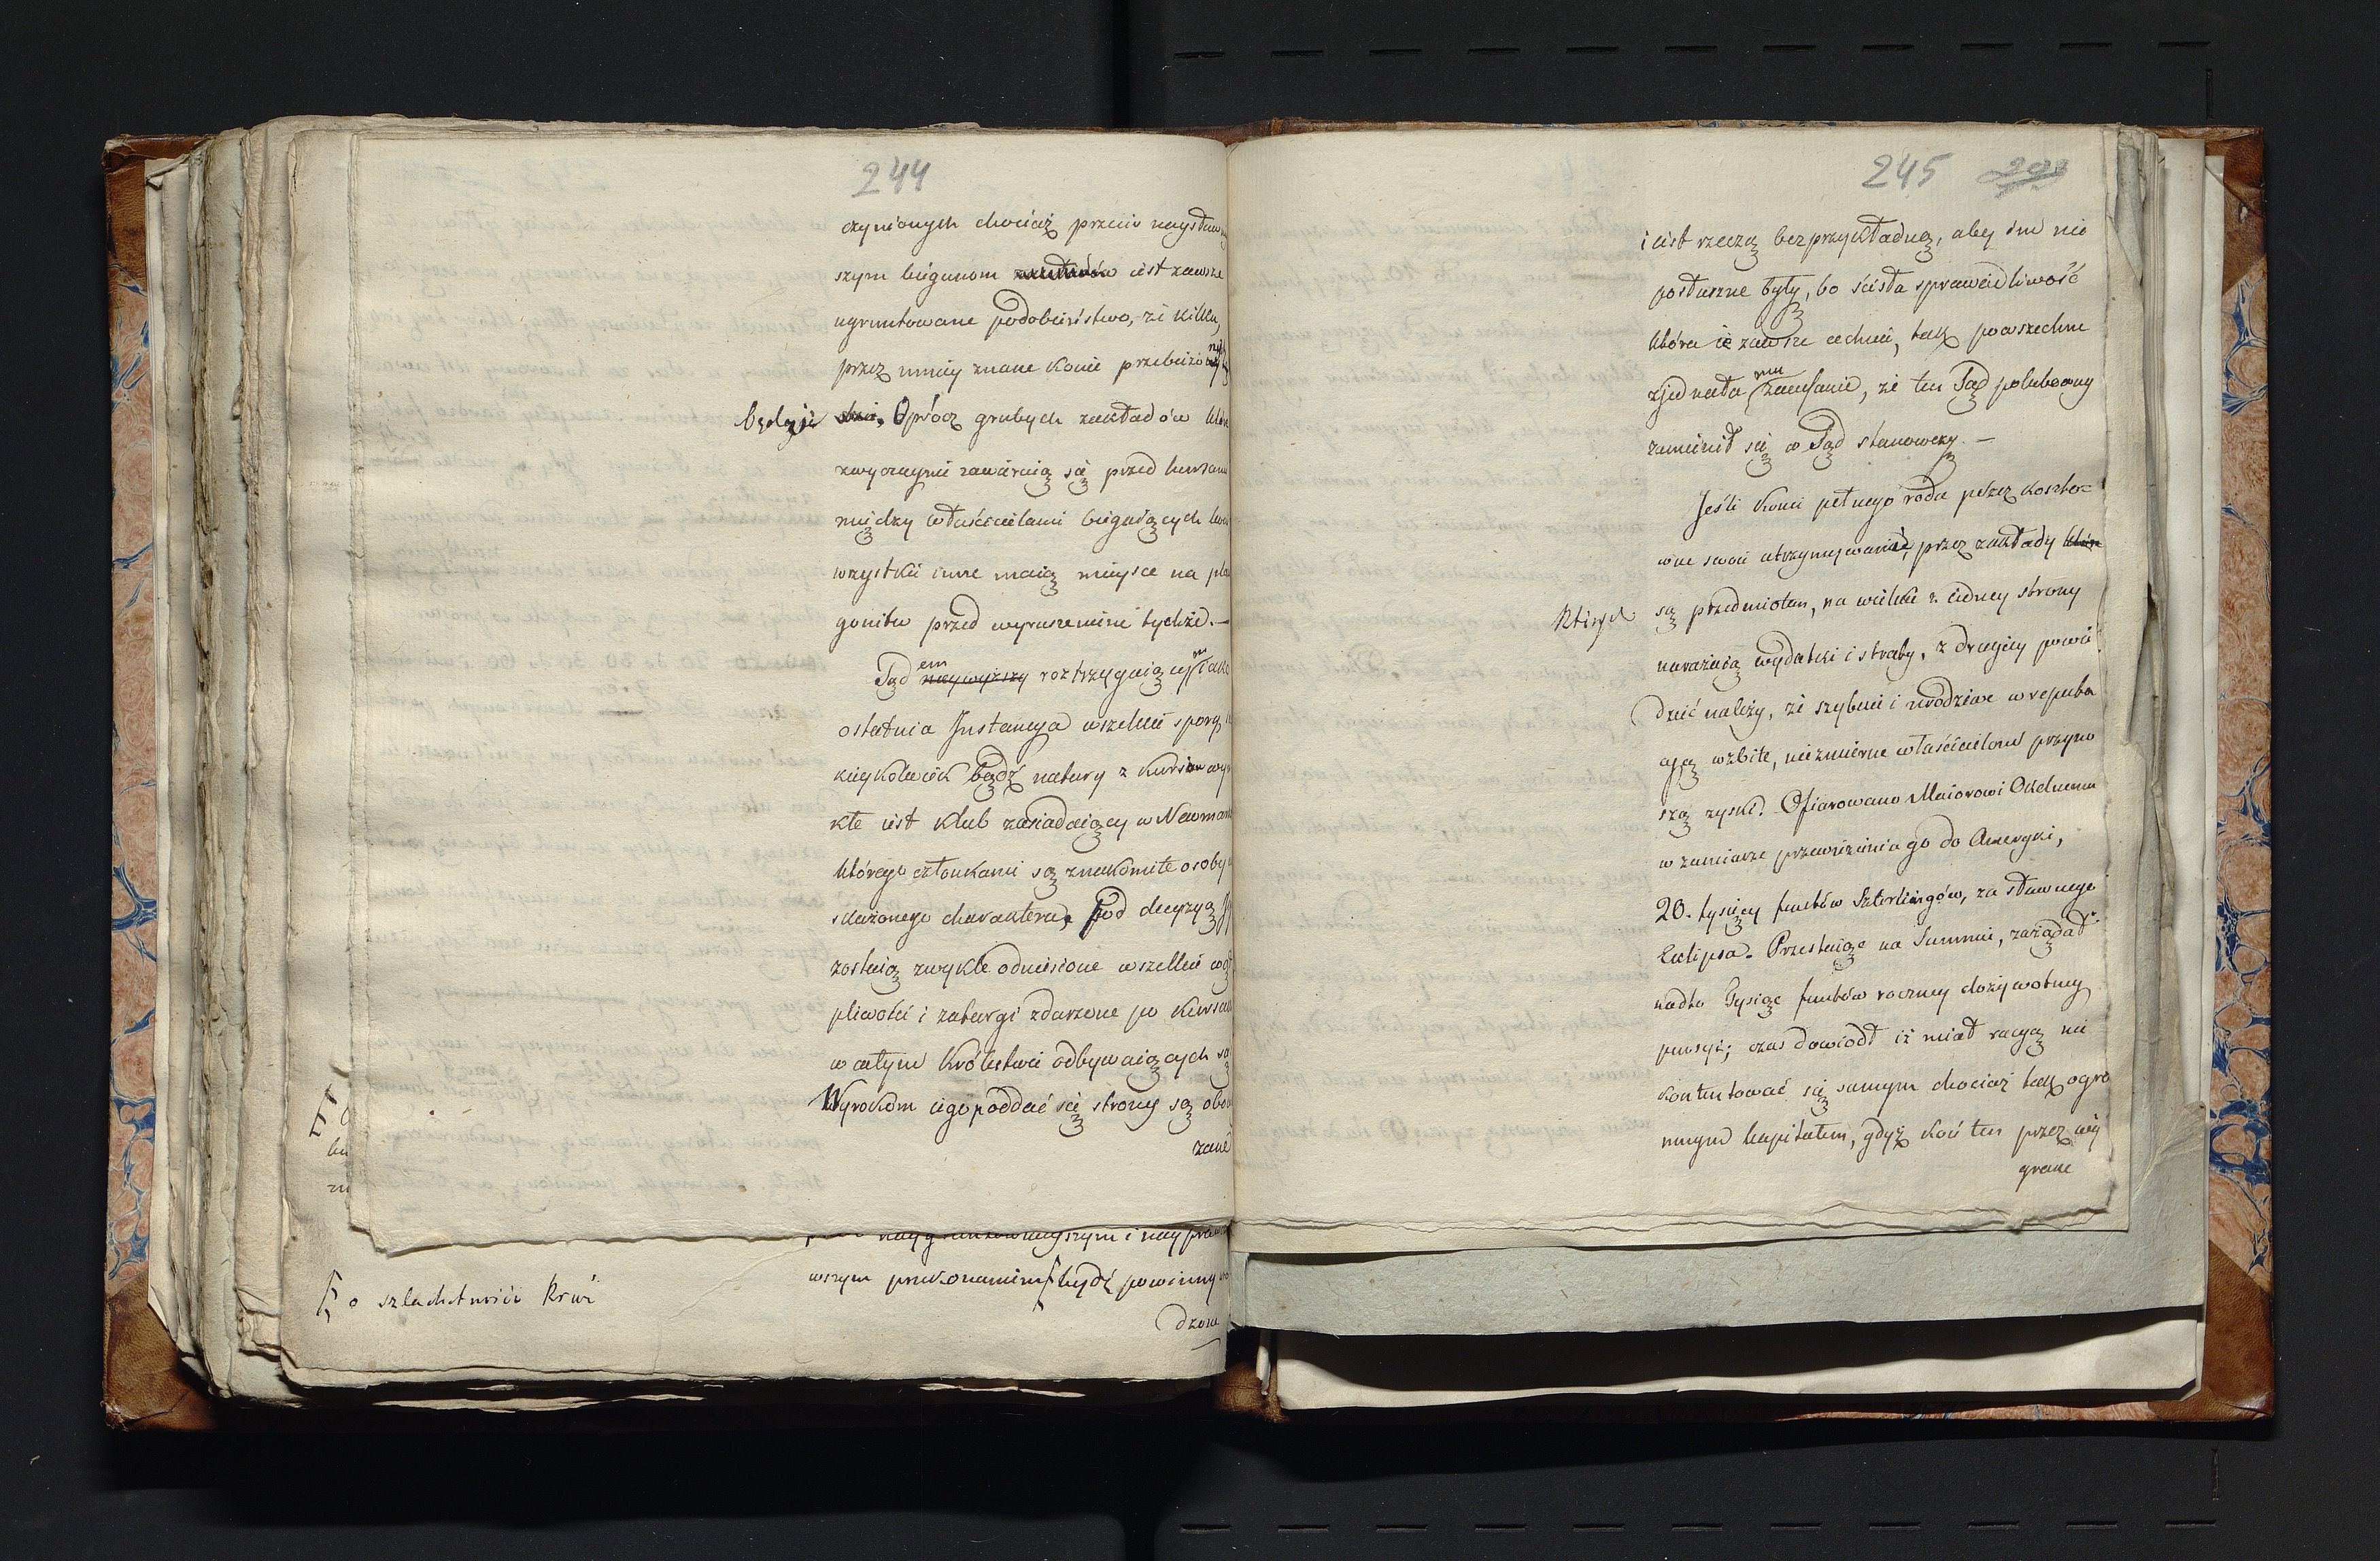 244
czynionych chociaż przeciw naysław
szym biegunom zakładów iest zawsze
ugruntowane podobieństwo, że kilku,
przez mniey znane konie przebieżo
będzie Oprócz grubych zakładów któ
zwyczaynie zawieraią się przed kursam
między właścicielami biegaiących ko
wszystkie inne maią mieysce na pla
gonitw przed wyruszeniem tychże.—
Sąd em naywyższy roztrzygaiący m iako
ostatnia Instancya wszelkie spory
kieykolwiek bądź natury z kursow wy
kłe iest Klub zasiadaiący w Newmark
którego członkami są znakomite osoby
skażonego charakteru, Pod decyzyą
zostaią zwykle odniesione wszelkie wą
pliwości i zatargi zdarzone po kursach
w całym Królestwie odbywaiących się
Wyrokom iego poddać się strony są obow
zane
naygruntownieyszym i nayprawd
wszym przekonaniem bydź powinny
dzone
o szlachetności krwi
245
iest rzeczą bezprzykładną, aby im nie
posłuszne były, bo ścisła sprawiedliwość
która ie zawsze cechuie, tak powszechne
zjednała mu zaufanie, że ten Sąd polubowny
zamienił się w Sąd stanowczy. —
Jeśli konie pełnego rodu przez koszto=
wne swoie utrzymywanie, przez zakłady któr
których są przedmiotem, na wielkie z iedney strony
narażaią wydatki i straty, z drugiey powie
dzieć należy, że szybkie i urodziwe w reputa
cyą wzbite, niezmierne właścicielom przyno
szą zyski. Ofiarowano Maiorowi Okeluemu
w zamiarze przewiezienia go do Ameryki,
20. tysięcy funtów Szterlingów, za sławnego
Eclipsa. Przestaiąc na Summie, zażądał
nadto Tysiąc funtów roczney dożywotney
pensyi; czas dowiódł iż miał racyą nie
kontentować się samym chociaż tak ogro
mnym kapitałem, gdyż koń ten przez wy
grane